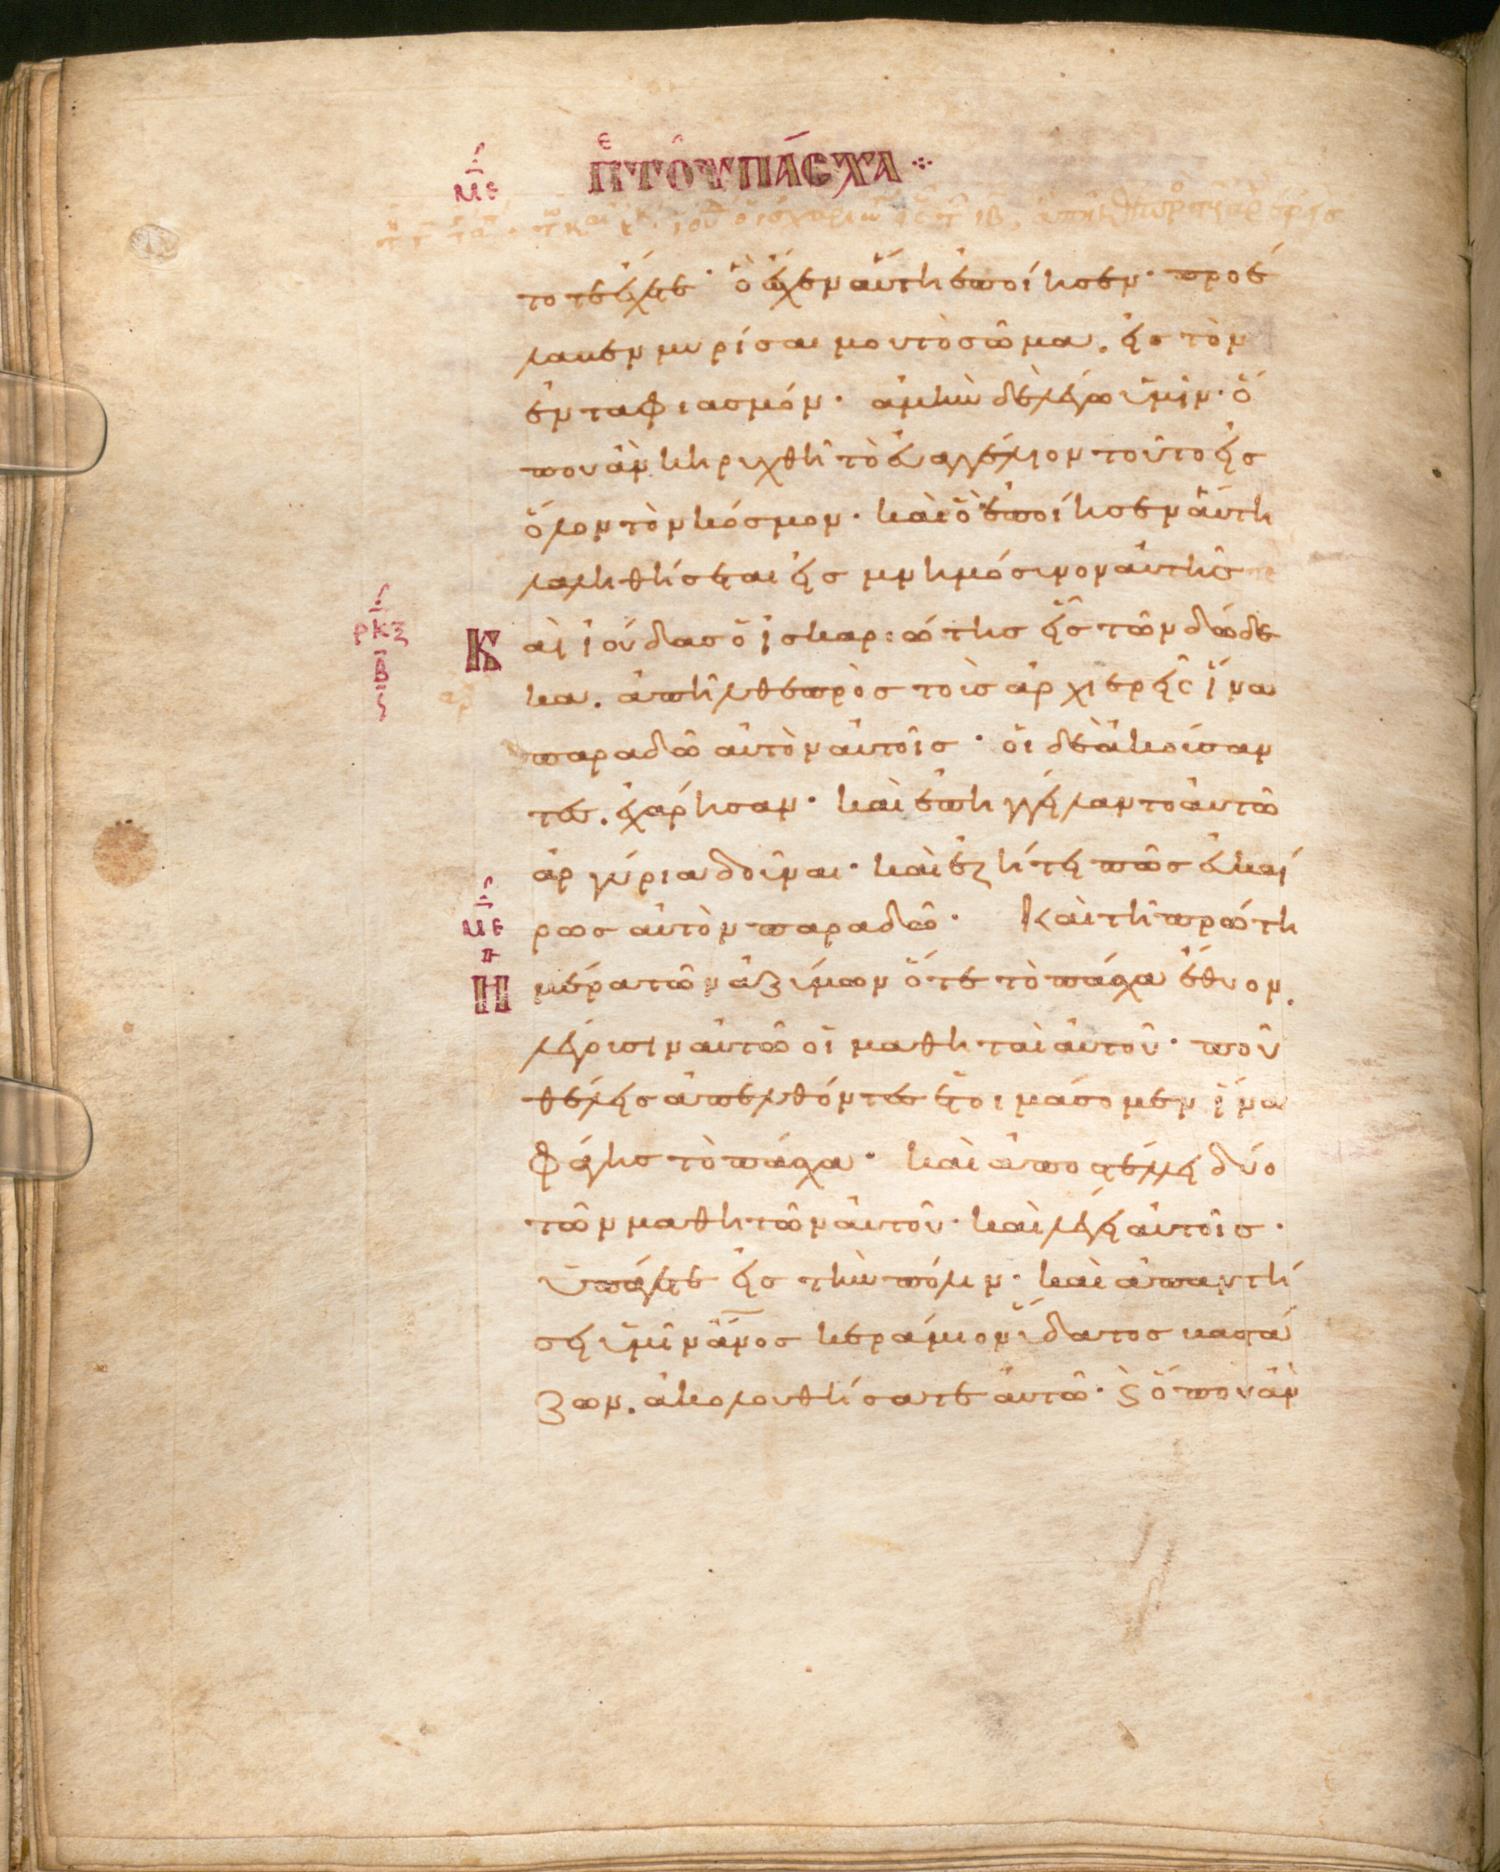 με
πε τοῦ πάσχα
τότε ἔχετε· ὃ ἔσχεν αὕτη ἐποίησεν· προέ
λαβεν μυρίσαι μου τὸ σῶμα. εἰς τὸν
ἐνταφιασμόν· ἀμὴν δὲ λέγω ὑμῖν· ὅ
που ἂν κηρυχθῆ τὸ εὐαγγέλιον τοῦτο εἰς
ὅλον τὸν κόσμον· καὶ ὃ ἐποίησεν αὕτη
λαληθήσεται εἰς μνημόσυνον αὐτῆς
ρκξ
β
Καὶ ἰούδας ὁ ἰσκαριώτης εἷς τῶν δώδε
κα. ἀπῆλθε πρὸς τοὺς ἀρχιερεῖς ἵνα
παραδῶ αὐτὸν αὐτοῖς· οἱ δὲ ἀκούσαν
τες. ἐχάρησαν· καὶ ἐπηγγείλαντο αὐτῶ
ἀργύρια δοῦναι· καὶ ἐζήτει πῶς εὐκαί
ρως αὐτὸν παραδῶ· Καὶ τῆ πρώτη
με
Ημέρα τῶν ἀζύμων ὅτε τὸ πάσχα ἔθυον.
λέγουσιν αὐτῶ οἱ μαθηταὶ αὐτοῦ· ποῦ
θέλεις ἀπελθόντες ἑτοιμάσομεν ἵνα
φάγης τὸ πάσχα· καὶ ἀποστέλλει δύο
τῶν μαθητῶν αὐτοῦ· καὶ λέγει αὐτοῖς·
ὑπάγετε εἰς τὴν πόλιν· καὶ ἀπαντή
σει ὑμῖν ἄνος κεράμιον ὕδατος βαστά
ζων. ἀκολουθήσατε αὐτῶ· ϗ ὅπου ἂν